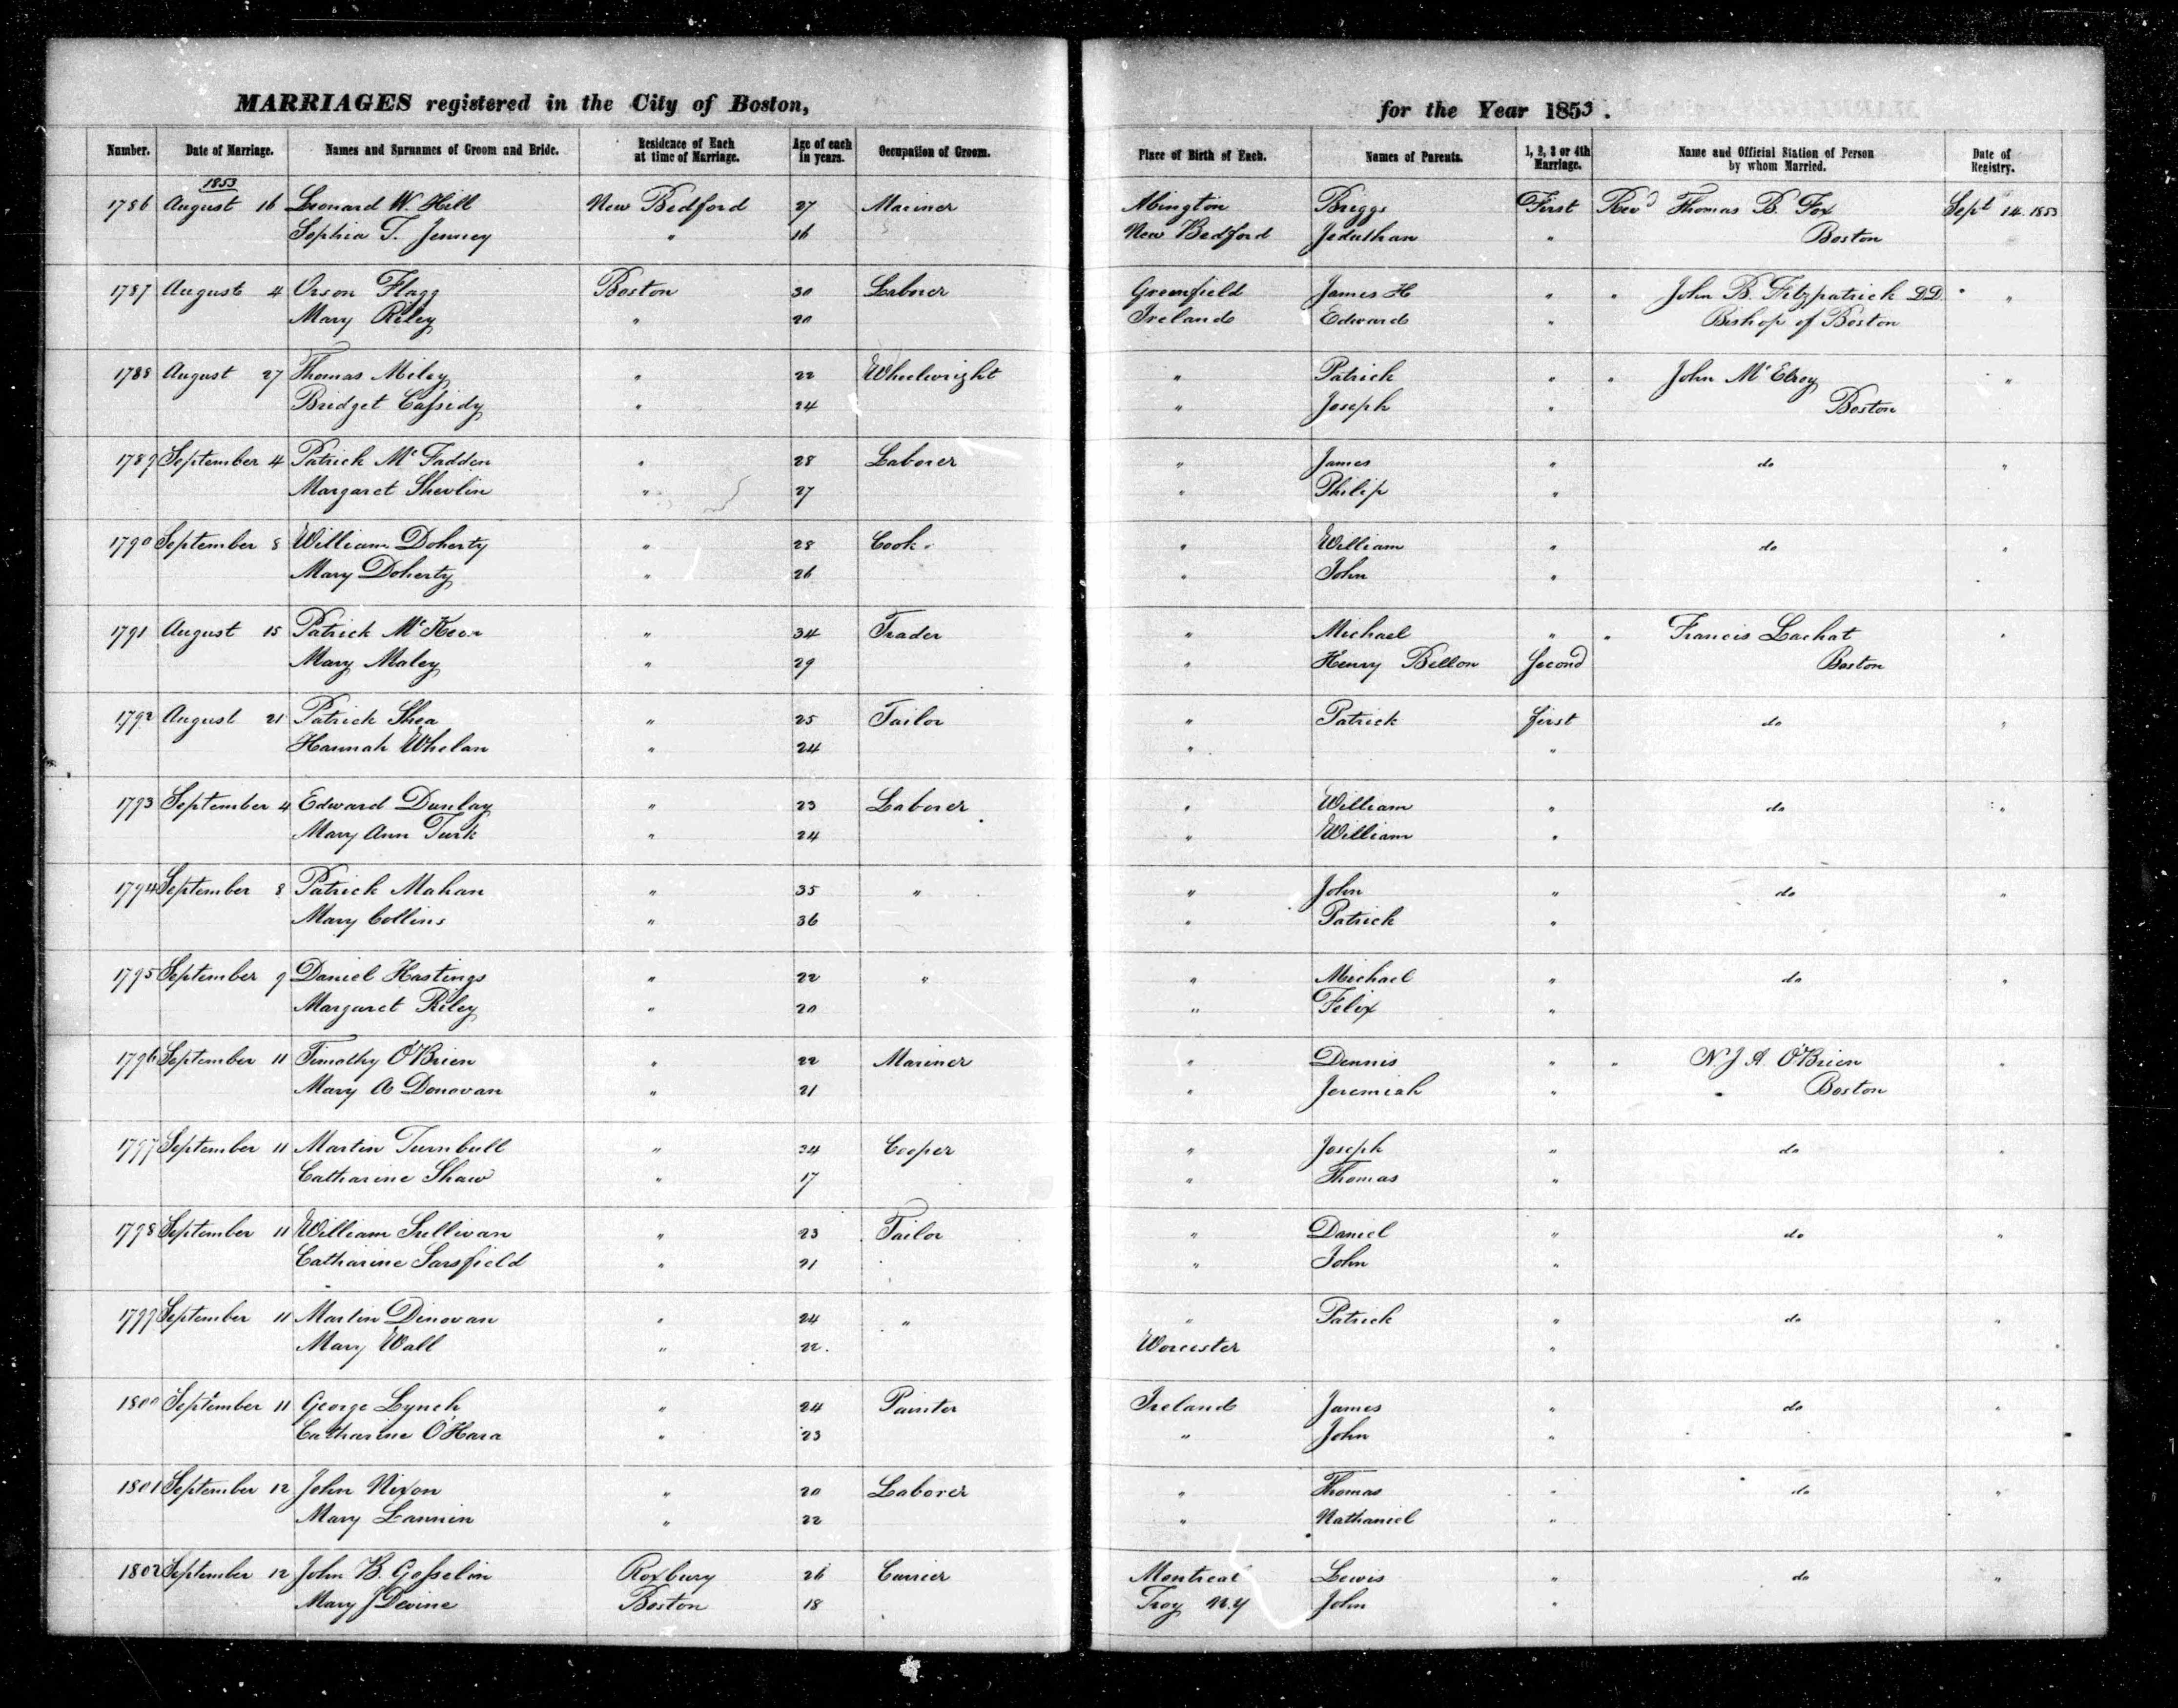 MARRIAGES registered in the City of Boston, for the Year 1853.
Number. Date of Marriage. Names and Surnames of Groom and Bride. Residence of Each at time of Marriage. Age of each in years. Occupation of Groom. Place of Birth of Each. Names of Parents. 1, 2, 3 or 4th Marriage. Name and Official Station of Person by whom Married. Date of Registry.
1853
1786 August 16 Leonard W. Hill New Bedford 27 Mariner Abington Briggs First Revd Thomas B. Fox Sept 14. 1853
Sophia T. Jenney " 16 New Bedford Jeduthan " Boston
1787 August 4 Orson Flagg Boston 30 Laborer Greenfield James H " " John B. Fitzpatrick D.D. " "
Mary Riley " 20 Ireland Edward " Bishop of Boston
1788 August 27 Thomas Miley " 22 Wheelwright " Patrick " " John McElroy "
Bridget Cassidy " 24 " Joseph " Boston
1789 September 4 Patrick McFadden " 28 Laborer " James " do "
Margaret Shevlin " 27 " Philip "
1790 September 8 William Doherty " 28 Cook. " William " do "
Mary Doherty " 26 " John "
1791 August 15 Patrick McKeon " 34 Trader " Michael " " Francis Lachat "
Mary Maley " 29 " Henry Bellon Second Boston
1792 August 21 Patrick Shea " 25 Tailor " Patrick first do "
Hannah Whelan " 24 " "
1793 September 4 Edward Dunlay " 23 Laborer " William " do "
Mary Ann Turk " 24 " William "
1794 September 8 Patrick Mahan " 35 " " John " do "
Mary Collins " 36 " Patrick "
1795 September 9 Daniel Hastings " 22 " " Michael " do "
Margaret Riley " 20 " Felix "
1796 September 11 Timothy O'Brien " 22 Mariner " Dennis " " N. J. A. O'Brien "
Mary A Donovan " 21 " Jeremiah " Boston
1797 September 11 Martin Turnbull " 34 Cooper " Joseph " do "
Catharine Shaw " 17 " Thomas "
1798 September 11 William Sullivan " 23 Tailor " Daniel " do "
Catharine Sarsfield " 21 " John "
1799 September 11 Martin Dinovan " 24 " " Patrick " do "
Mary Wall " 22. Worcester "
1800 September 11 George Lynch " 24 Painter Ireland James " do "
Catharine O'Hara " 23 " John "
1801 September 12 John Nixon " 20 Laborer " Thomas " do "
Mary Lannin " 22 " Nathaniel "
1802 September 12 John B. Gosselin Roxbury 26 Currier Montreal Lewis " do "
Mary J Devine Boston 18 Troy N.Y John "